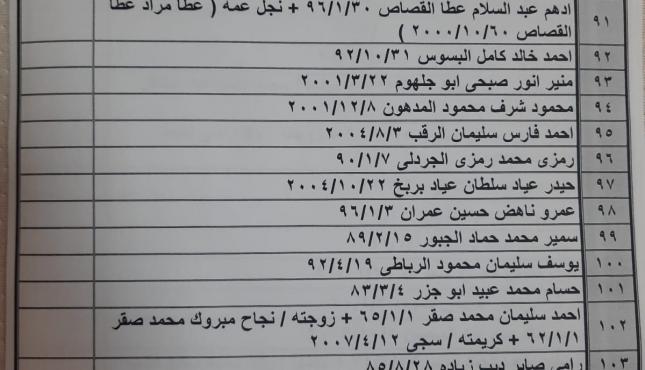 ٩١ ادهم عبد السلام عطا القصاص ٩٦/١/٣٠ + نجل عمه ( عطا مراد عطا
القصاص ٢٠٠٠/١٠/٦٠ )
٩٢ احمد خالد كامل البسوس ٩٢/١٠/٣١
٩٣ منير انور صبحى ابو جلهوم ٢٠٠١/٣/٢٢
٩٤ محمود شرف محمود المدهون ٢٠٠١/١٢/٨
٩٥ احمد فارس سليمان الرقب ٢٠٠٤/٨/٣
٩٦ رمزى محمد رمزى الجردلى ٩٠/١/٧
٩٧ حيدر عياد سلطان عياد بربخ ٢٠٠٤/١٠/٢٢
٩٨ عمرو ناهض حسين عمران ٩٦/١/٣
٩٩ سمير محمد حماد الجبور ٨٩/٢/١٥
١٠٠ يوسف سليمان محمود الرباطى ٩٢/٤/١٩
١٠١ حسام محمد عبيد ابو جزر ٨٣/٣/٤
١٠٢ احمد سليمان محمد صقر ٦٥/١/١ + زوجته / نجاح مبروك محمد صقر
٦٢/١/١ + كريمته / سجى ٢٠٠٧/٤/١٢
١٠٣ رامى صابر ديب زياده ٨٥/٨/٢٨